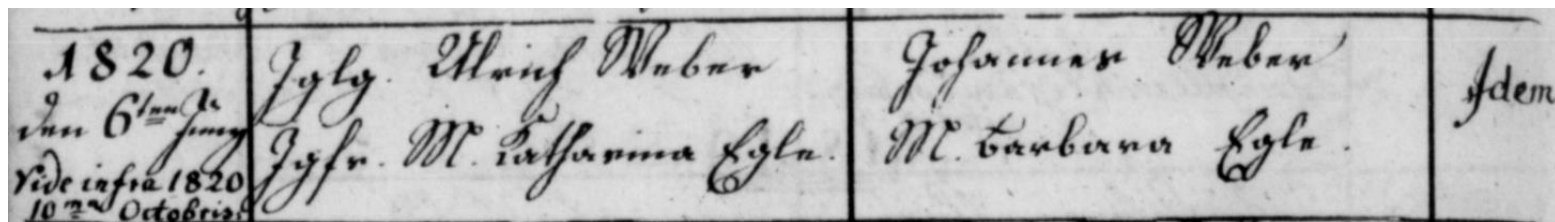 1820.
den 6ten Juny
Vide infra 1820
10ma Octobris.
Jglg. Ulrich Weber
Jgfr. M. Katharina Egle.
Johannes Weber
M. Barbara Egle.
Idem